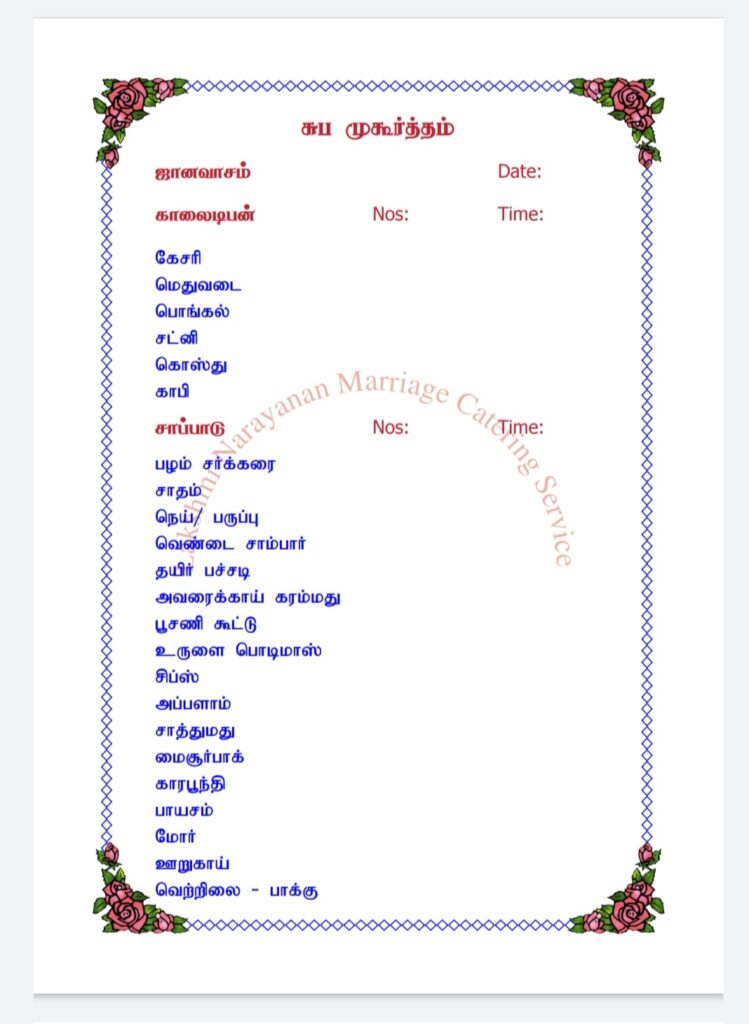 சுப முகூர்த்தம்
ஜானவாசம் Date:
காலைடிபன் Nos: Time:
கேசரி
மெதுவடை
பொங்கல்
சட்னி
கொஸ்து
காபி
Lakshmi Narayanan Marriage Catering Service
சாப்பாடு Nos: Time:
பழம் சர்க்கரை
சாதம்
நெய்/ பருப்பு
வெண்டை சாம்பார்
தயிர் பச்சடி
அவரைக்காய் கரம்மது
பூசணி கூட்டு
உருளை பொடிமாஸ்
சிப்ஸ்
அப்பளாம்
சாத்துமது
மைசூர்பாக்
காரபூந்தி
பாயசம்
மோர்
ஊறுகாய்
வெற்றிலை - பாக்கு